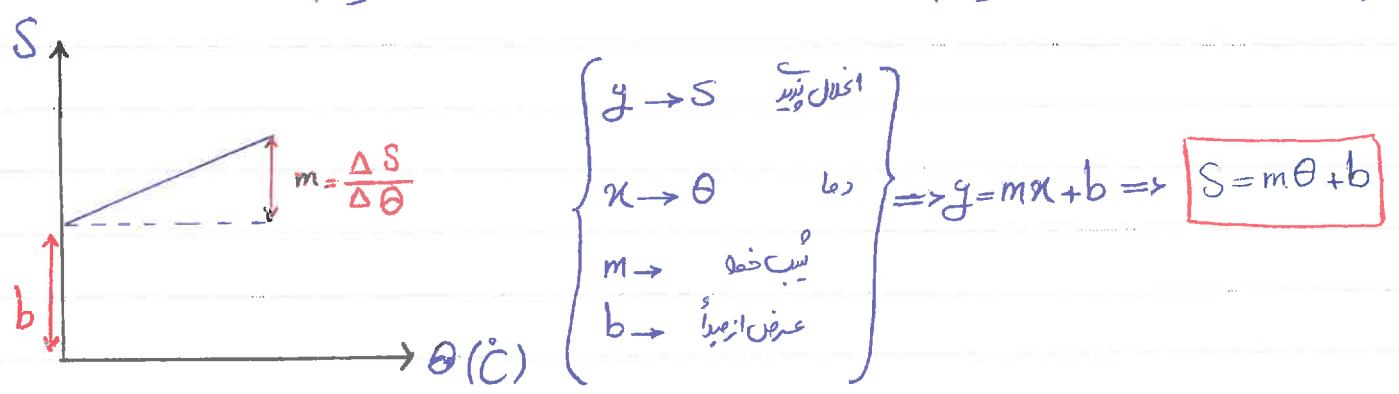 S
m = ΔS/ΔΘ
b
Θ (°C)
y → S انحلال پذیری
x → Θ دما
m → شیب خط
b → عرض از مبدأ
=> y = mx + b => S = mΘ + b